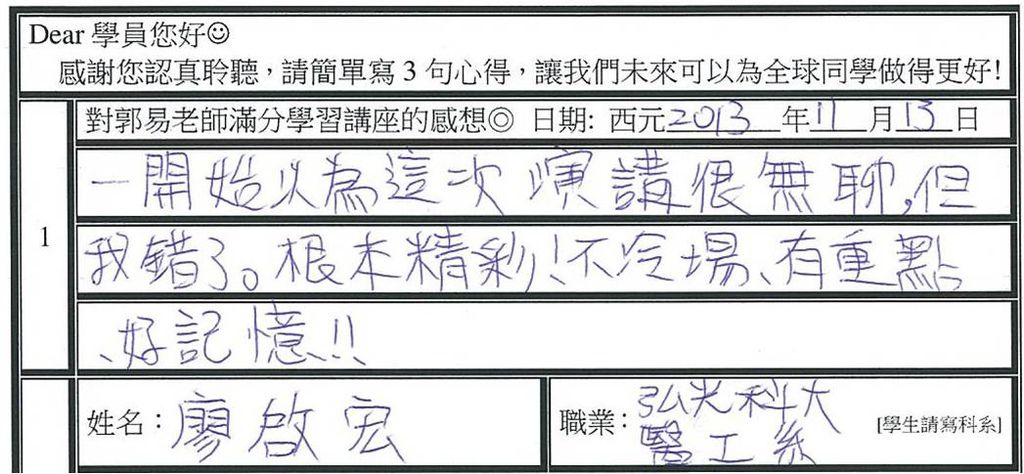 Dear 學員您好☺
感謝您認真聆聽，請簡單寫 3 句心得，讓我們未來可以為全球同學做得更好!
對郭易老師滿分學習講座的感想◎ 日期: 西元2013年11月13日
一開始以為這次演講很無聊,但
1
我錯了。根本精彩!不冷場、有重點
、好記憶!!
姓名：廖啟宏
職業：弘光科大
醫工系
[學生請寫科系]